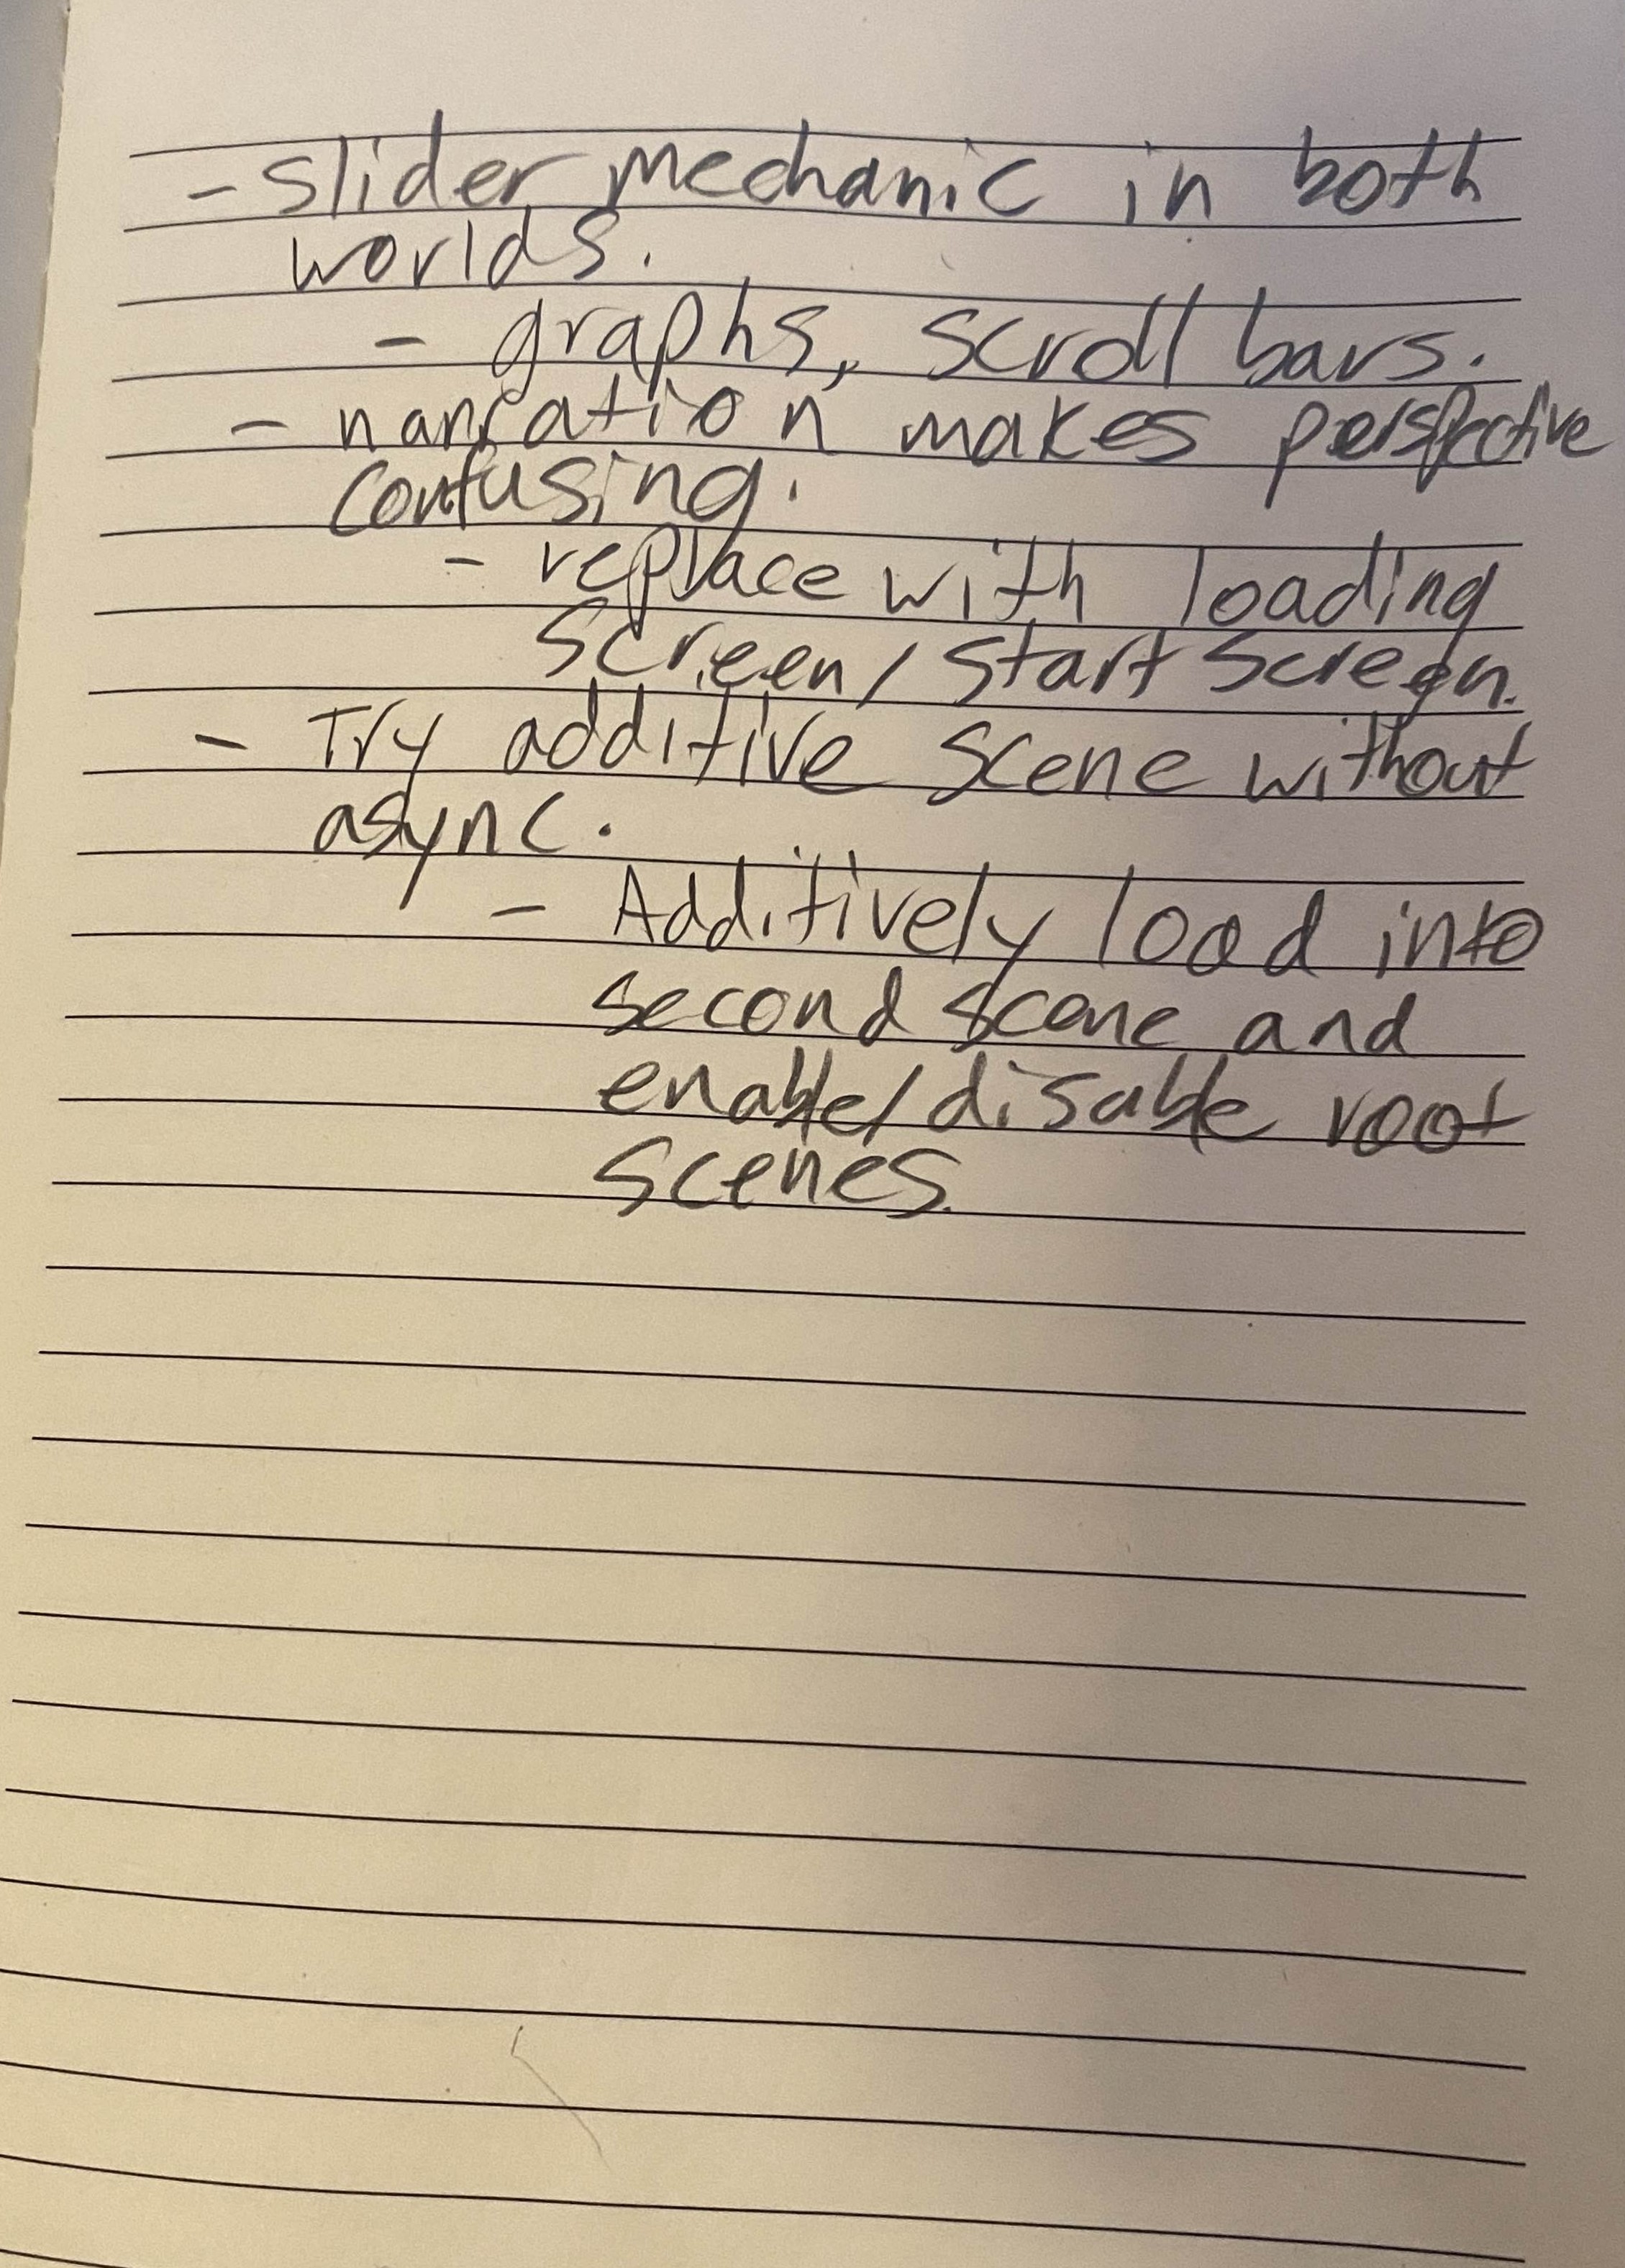 - slider mechanic in both
worlds.
- graphs, scroll bars.
- narration makes perspective
confusing.
- replace with loading
screen/start screen.
- Try additive scene without
async.
- Additively load into
second scene and
enable/disable root
scenes.